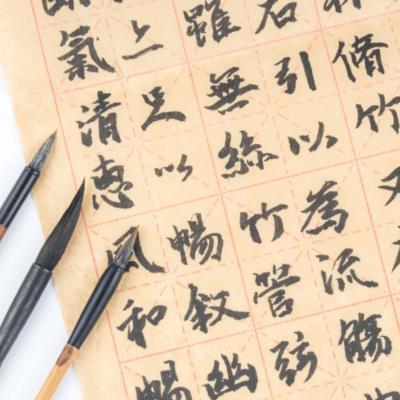 脩竹又
右引以為流觴
雖無絲竹管弦
足以暢叙幽
氣清惠風和暢